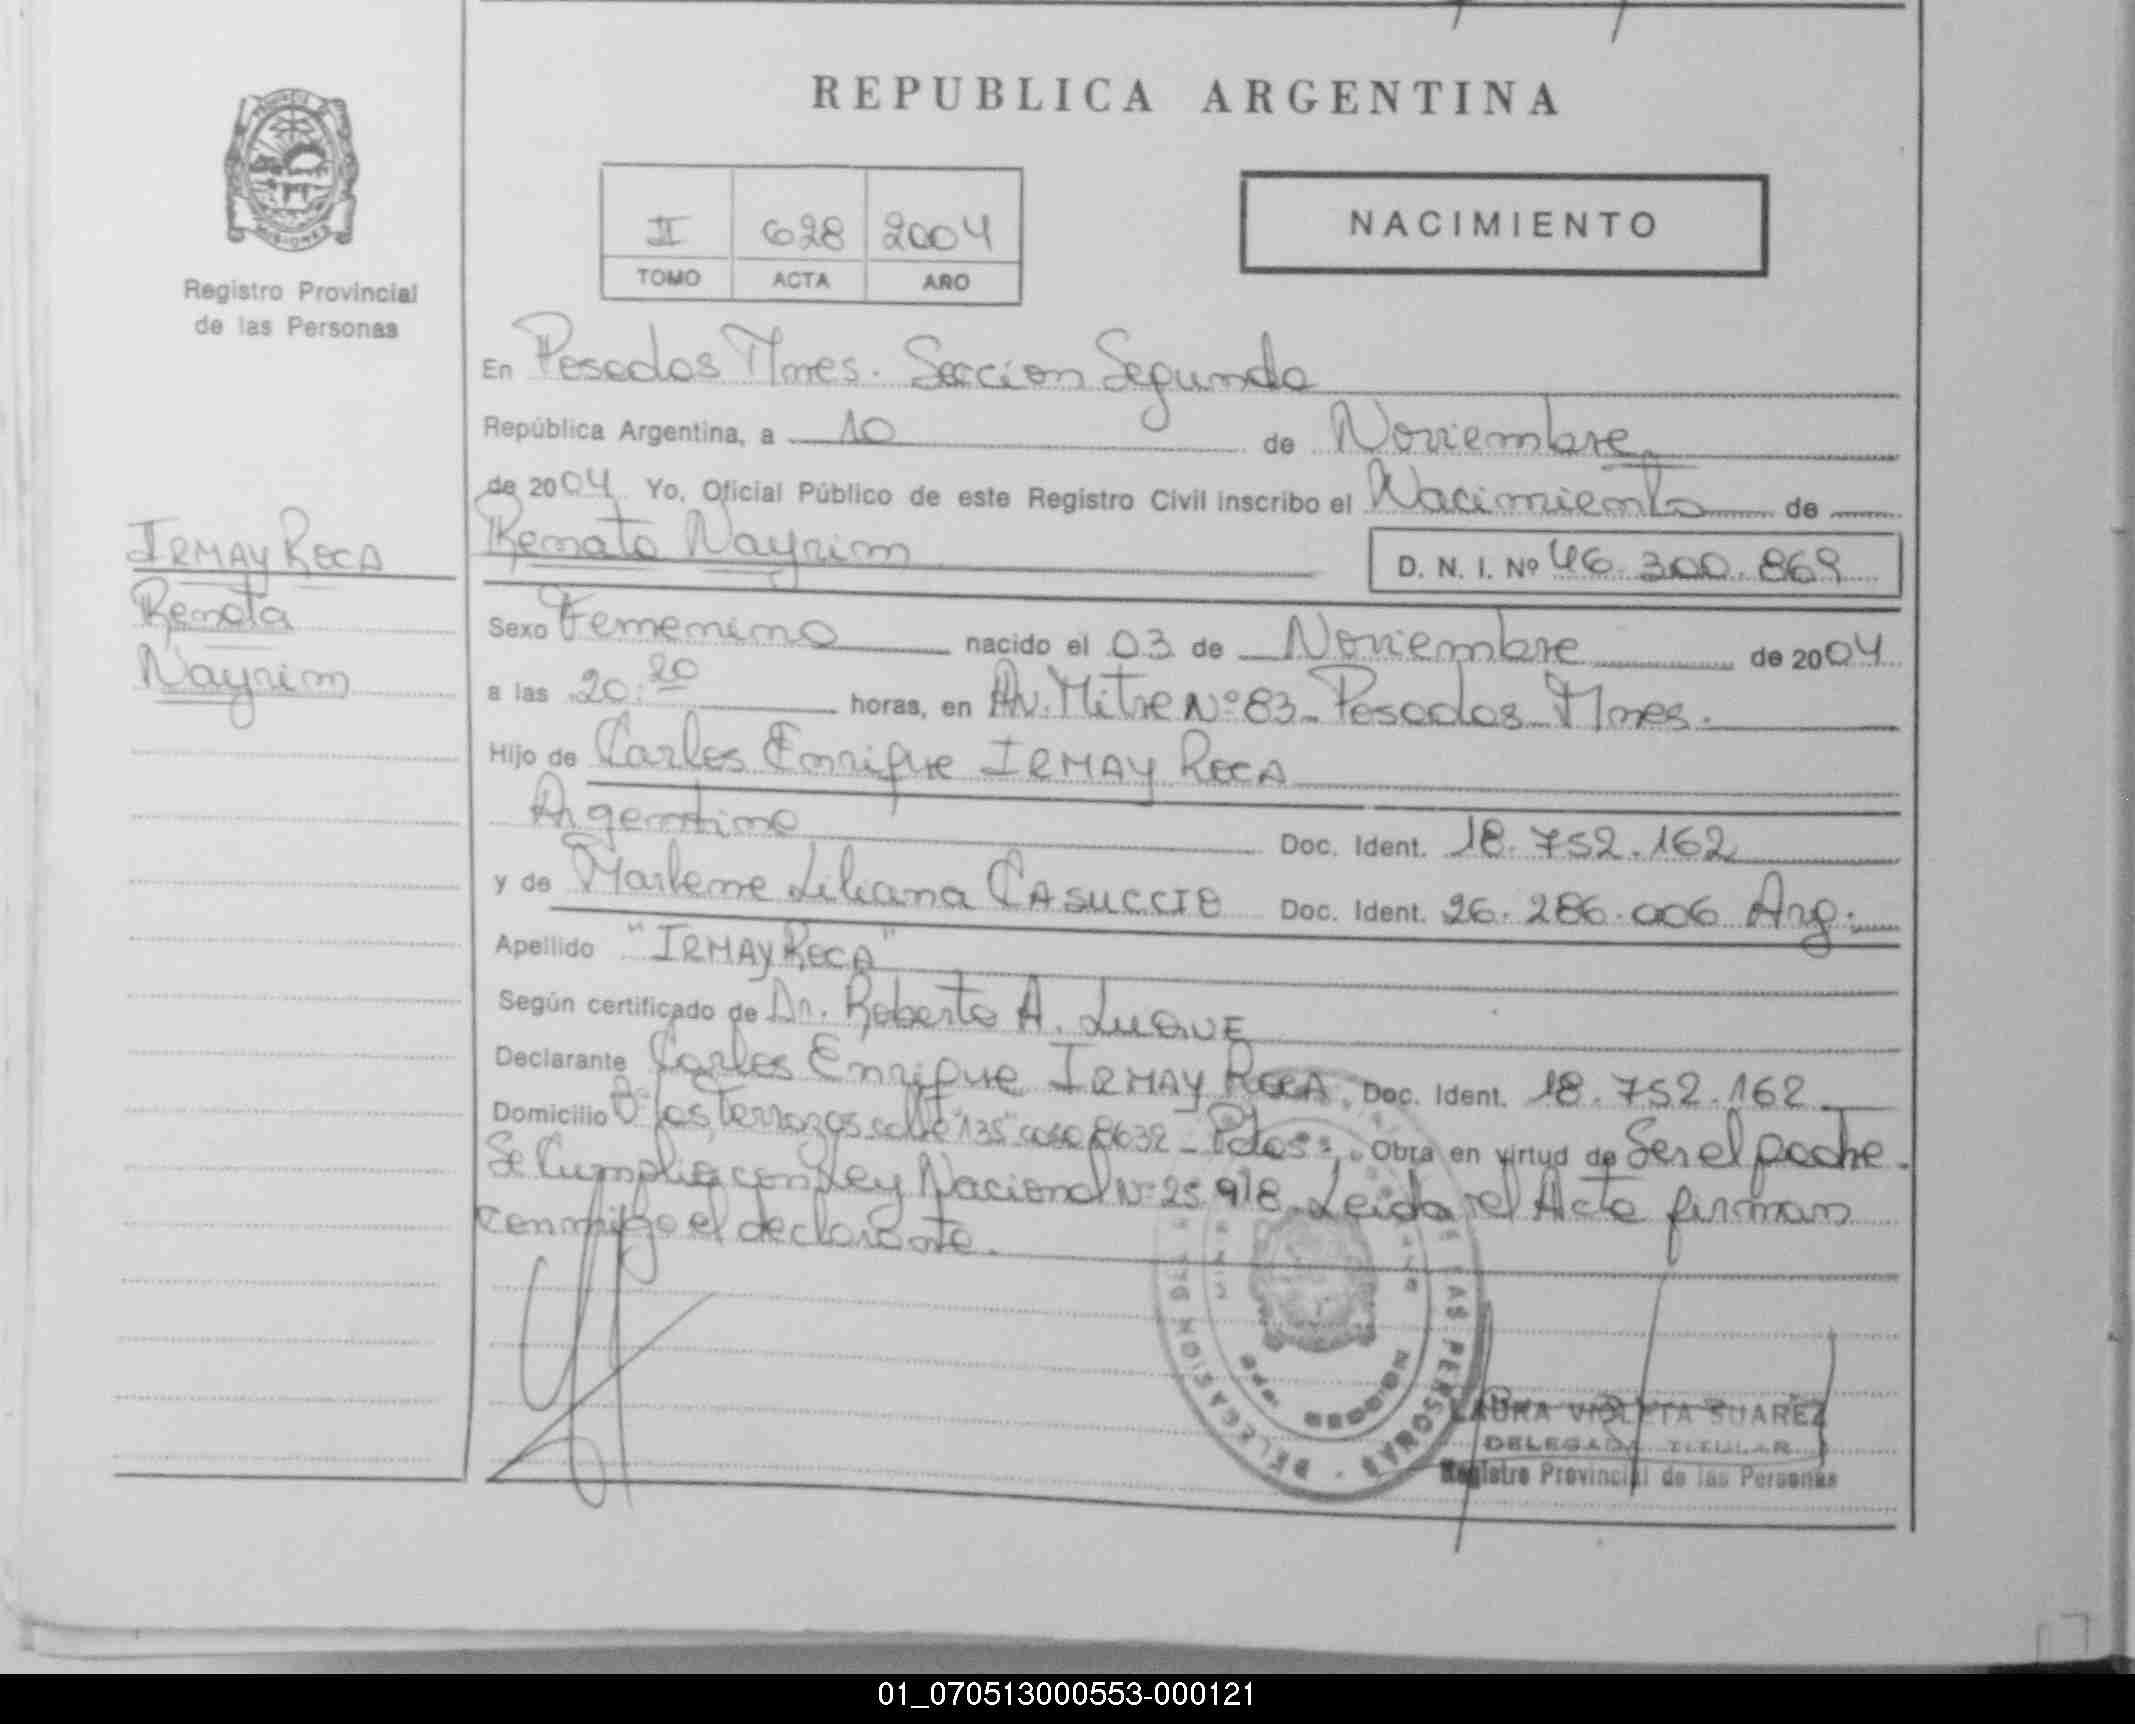 REPUBLICA ARGENTINA
MISIONES
Registro Provincial
de las Personas
II 628 2004
TOMO ACTA AÑO
NACIMIENTO
En Posadas Mnes. Sección Segunda
República Argentina, a 10 de Noviembre
de 2004 Yo, Oficial Público de este Registro Civil inscribo el Nacimiento de
Renata Nayrim D. N. I. Nº 46.300.869
IRMAY ROCA
Renata
Nayrim
Sexo Femenino nacido el 03 de Noviembre de 2004
a las 20:20 horas, en Av. Mitre Nº 83 - Posadas - Mnes.
Hijo de Carlos Enrique IRMAY ROCA
Argentino Doc. Ident. 18.752.162
y de Marlene Liliana CASUCCIO Doc. Ident. 26.286.006 Arg.
Apellido "IRMAY ROCA"
Según certificado de Dr. Roberto A. LUQUE
Declarante Carlos Enrique IRMAY ROCA. Doc. Ident. 18.752.162
Domicilio Bº Las Terrazas calle "135" casa 8632 - Pdas. Obra en virtud de Ser el padre.
Se Cumplio con Ley Nacional Nº 25.918. Leida el Acta firman
conmigo el declarante.
LAURA VIOLETA SUAREZ
DELEGADA TITULAR
Registro Provincial de las Personas
01_070513000553-000121